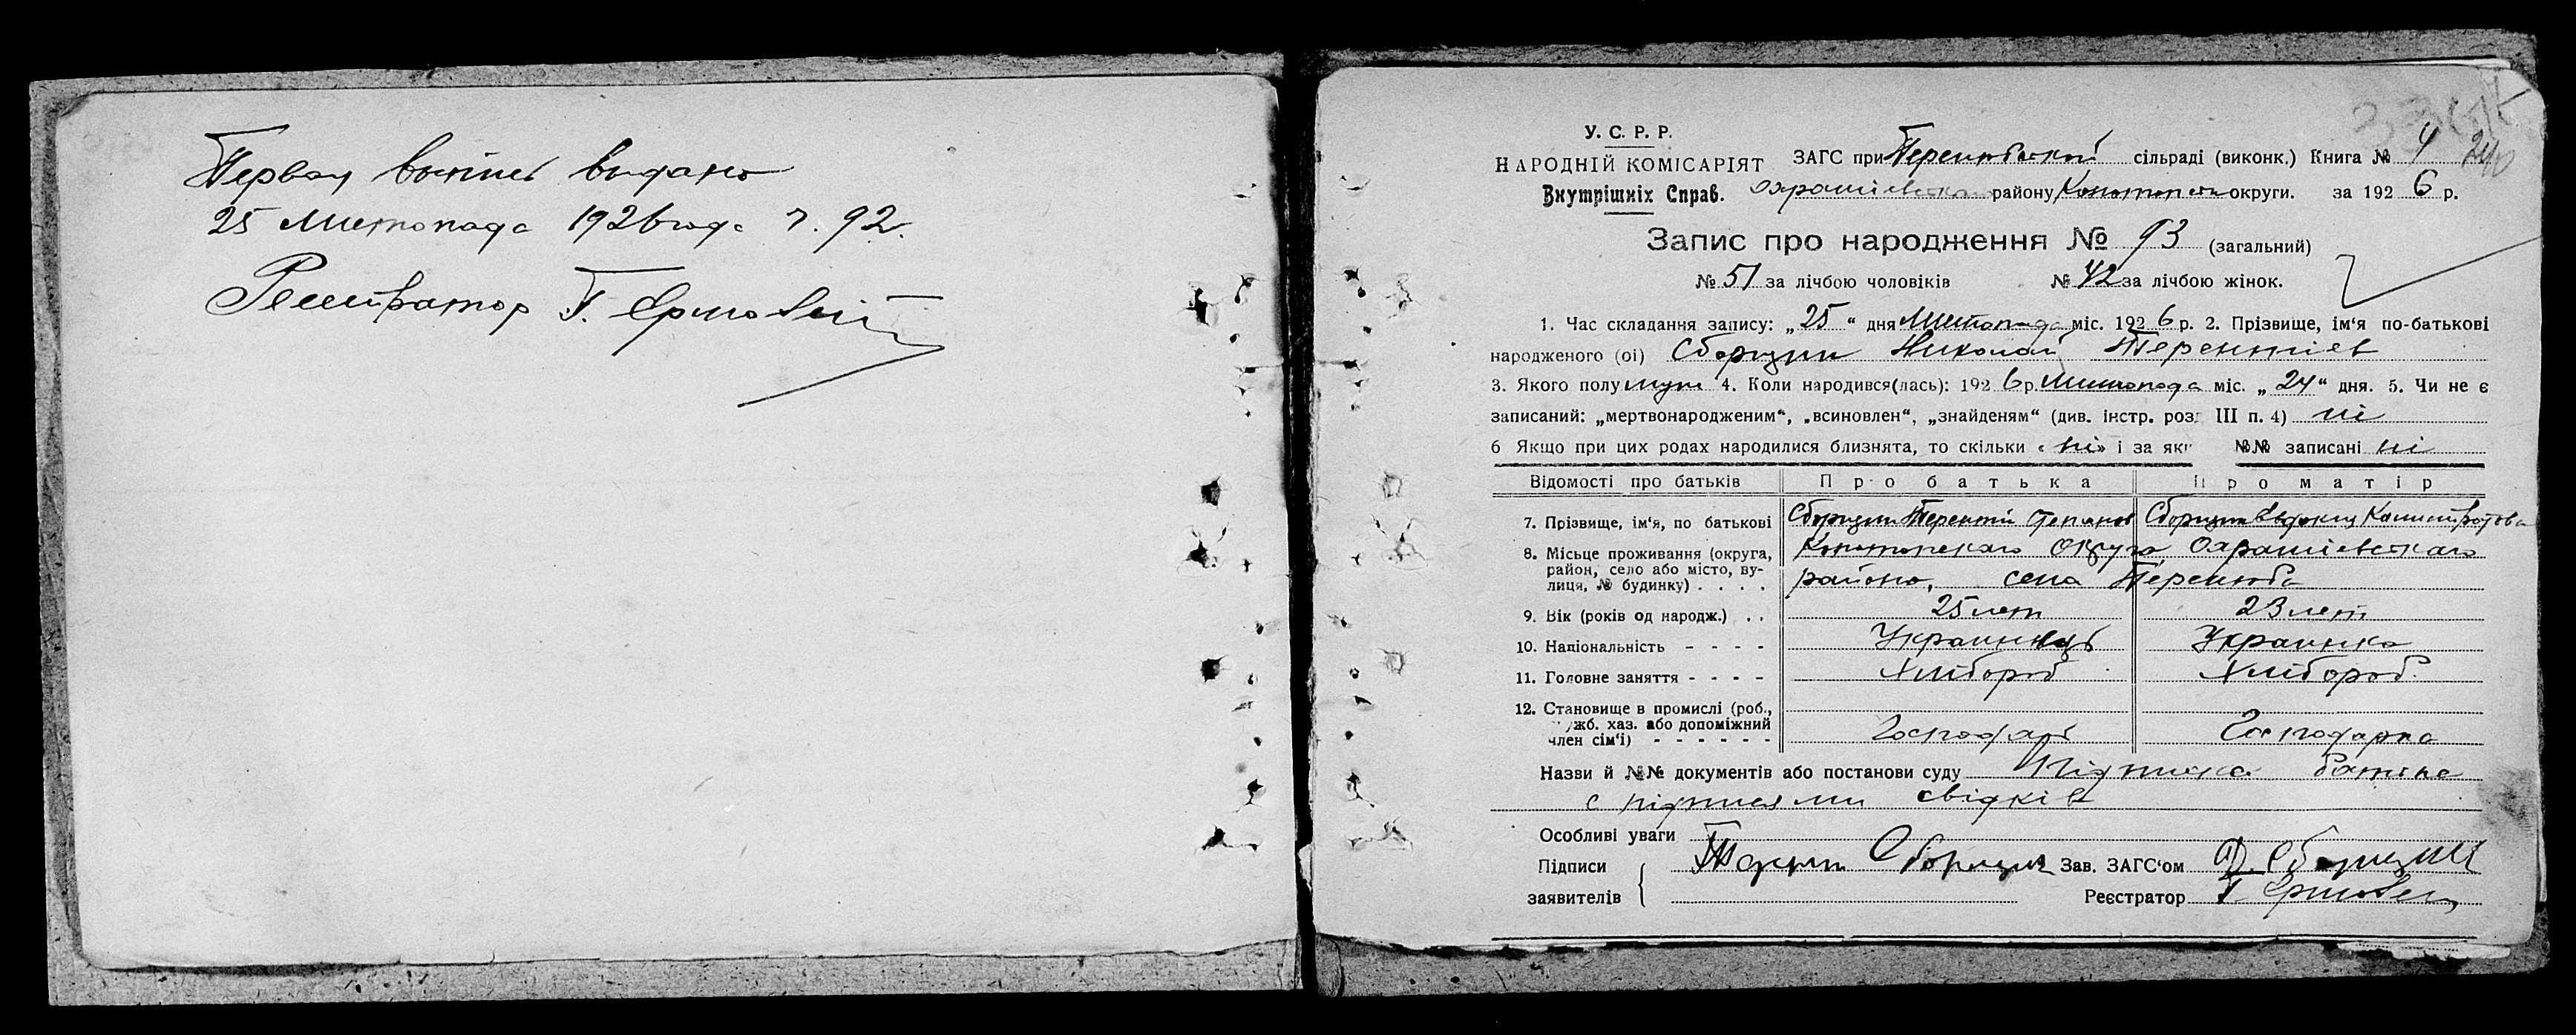 Первая выпись выдано
25 листопада 1926 года ч. 92.
Реєстратор Т.
У. С. Р. Р.
НАРОДНІЙ КОМІСАРІЯТ
Внутрішніх Справ.
ЗАГС при сільраді (виконк.) Книга № 4
району Конотопской округи. за 1926 р.
Запис про народження № 93 (загальний)
№ 51 за лічбою чоловіків № 42 за лічбою жінок.
1. Час складання запису: „25“ дня Листопада міс. 1926 р. 2. Прізвище, ім‘я по-батькові
народженого (ої) Сборщик Николай Терентиев
3. Якого полу муж 4. Коли народився(лась): 1926 р. Листопада міс. „24“ дня. 5. Чи не є
записаний: „мертвонародженим“, „всиновлен“, „знайденям“ (див. інстр. розд III п. 4) ні
6 Якщо при цих родах народилися близнята, то скільки «ні» і за які №№ записані ні
Відомості про батьків Про батька Про матір
7. Прізвище, ім‘я, по батькові Сборщик Терентий Степанов Сборщик Евдокия Калистратова
8. Місьце проживання (округа, Конотопскаго Округа
район, село або місто, ву- района, села
лиця, № будинку) . . . .
9. Вік (років од народж.) . . 25 лет 23 лет
10. Національність - - - - Украинець Украинка
11. Головне заняття - - - - Хлібороб Хлібороб.
12. Становище в промислі (роб.,
служб. хаз. або допоміжний
член сім‘ї) - - - - - - Господарь Господарка
Назви й №№ документів або постанови суду Підписка батька
с підписями свідків
Особливі уваги
Підписи Сборщик Зав. ЗАГС‘ом Сборщик
заявителів Реєстратор Т.